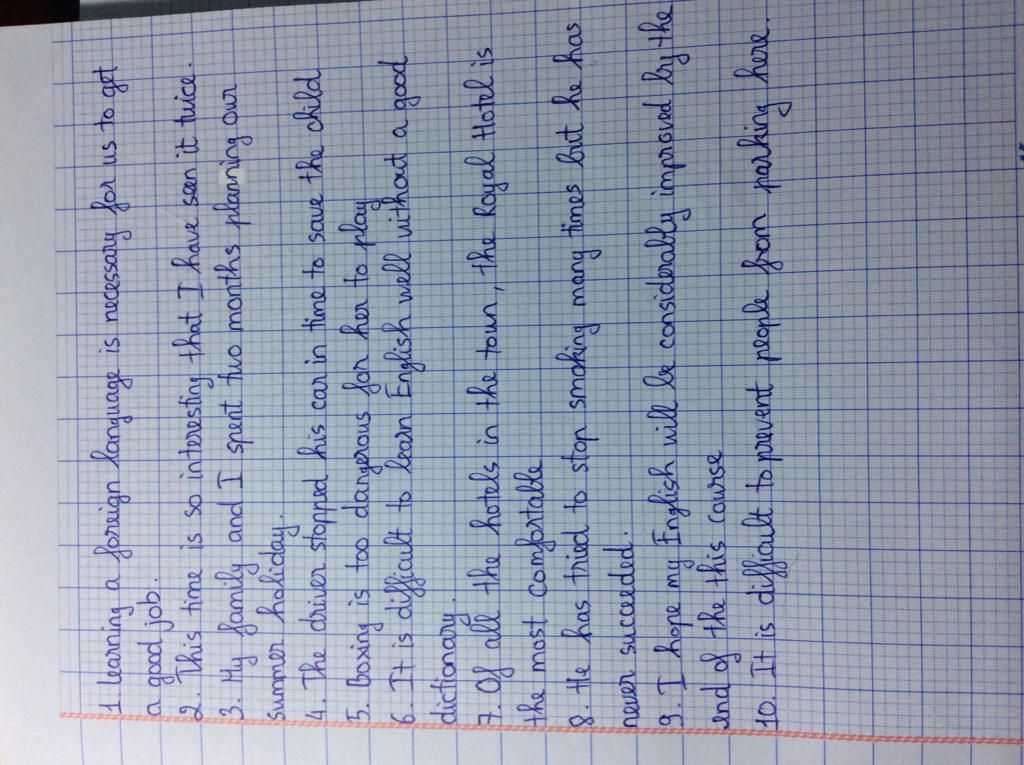 1. Learning a foreign language is necessary for us to get
a good job.
2. This time is so interesting that I have seen it twice.
3. My family and I spent two months planning our
summer holiday.
4. The driver stopped his car in time to save the child
5. Boxing is too dangerous for her to play
6. It is difficult to learn English well without a good
dictionary.
7. Of all the hotels in the town, the Royal Hotel is
the most comfortable
8. He has tried to stop smoking many times but he has
never succeeded.
9. I hope my English will be considerably improved by the
end of the this course
10. It is difficult to prevent people from parking here.